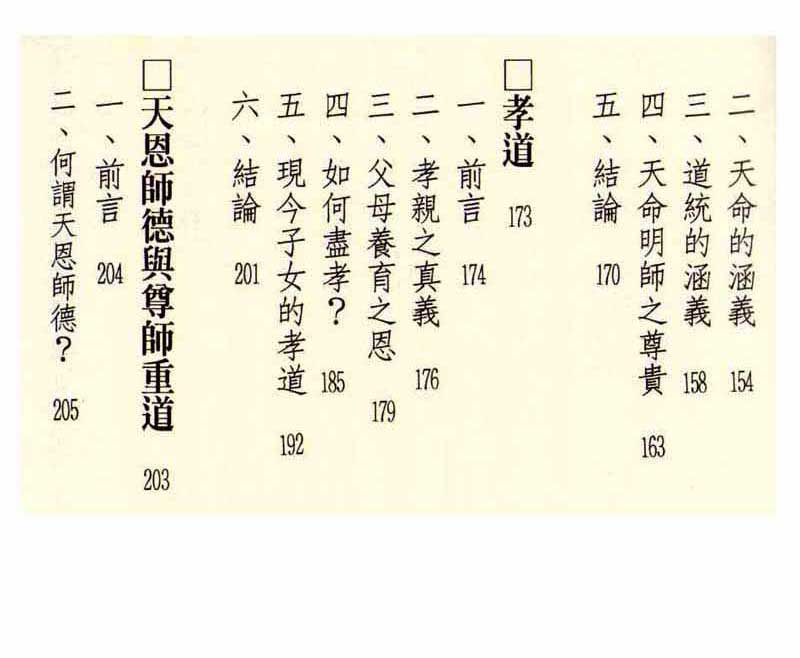 二、天命的涵義 154
三、道統的涵義 158
四、天命明師之尊貴 163
五、結論 170
□孝道 173
一、前言 174
二、孝親之真義 176
三、父母養育之恩 179
四、如何盡孝？ 185
五、現今子女的孝道 192
六、結論 201
□天恩師德與尊師重道 203
一、前言 204
二、何謂天恩師德？ 205